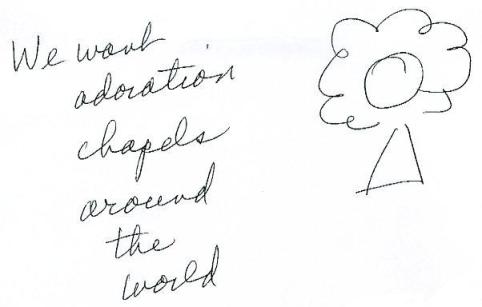 We want
adoration
chapels
around
the
world